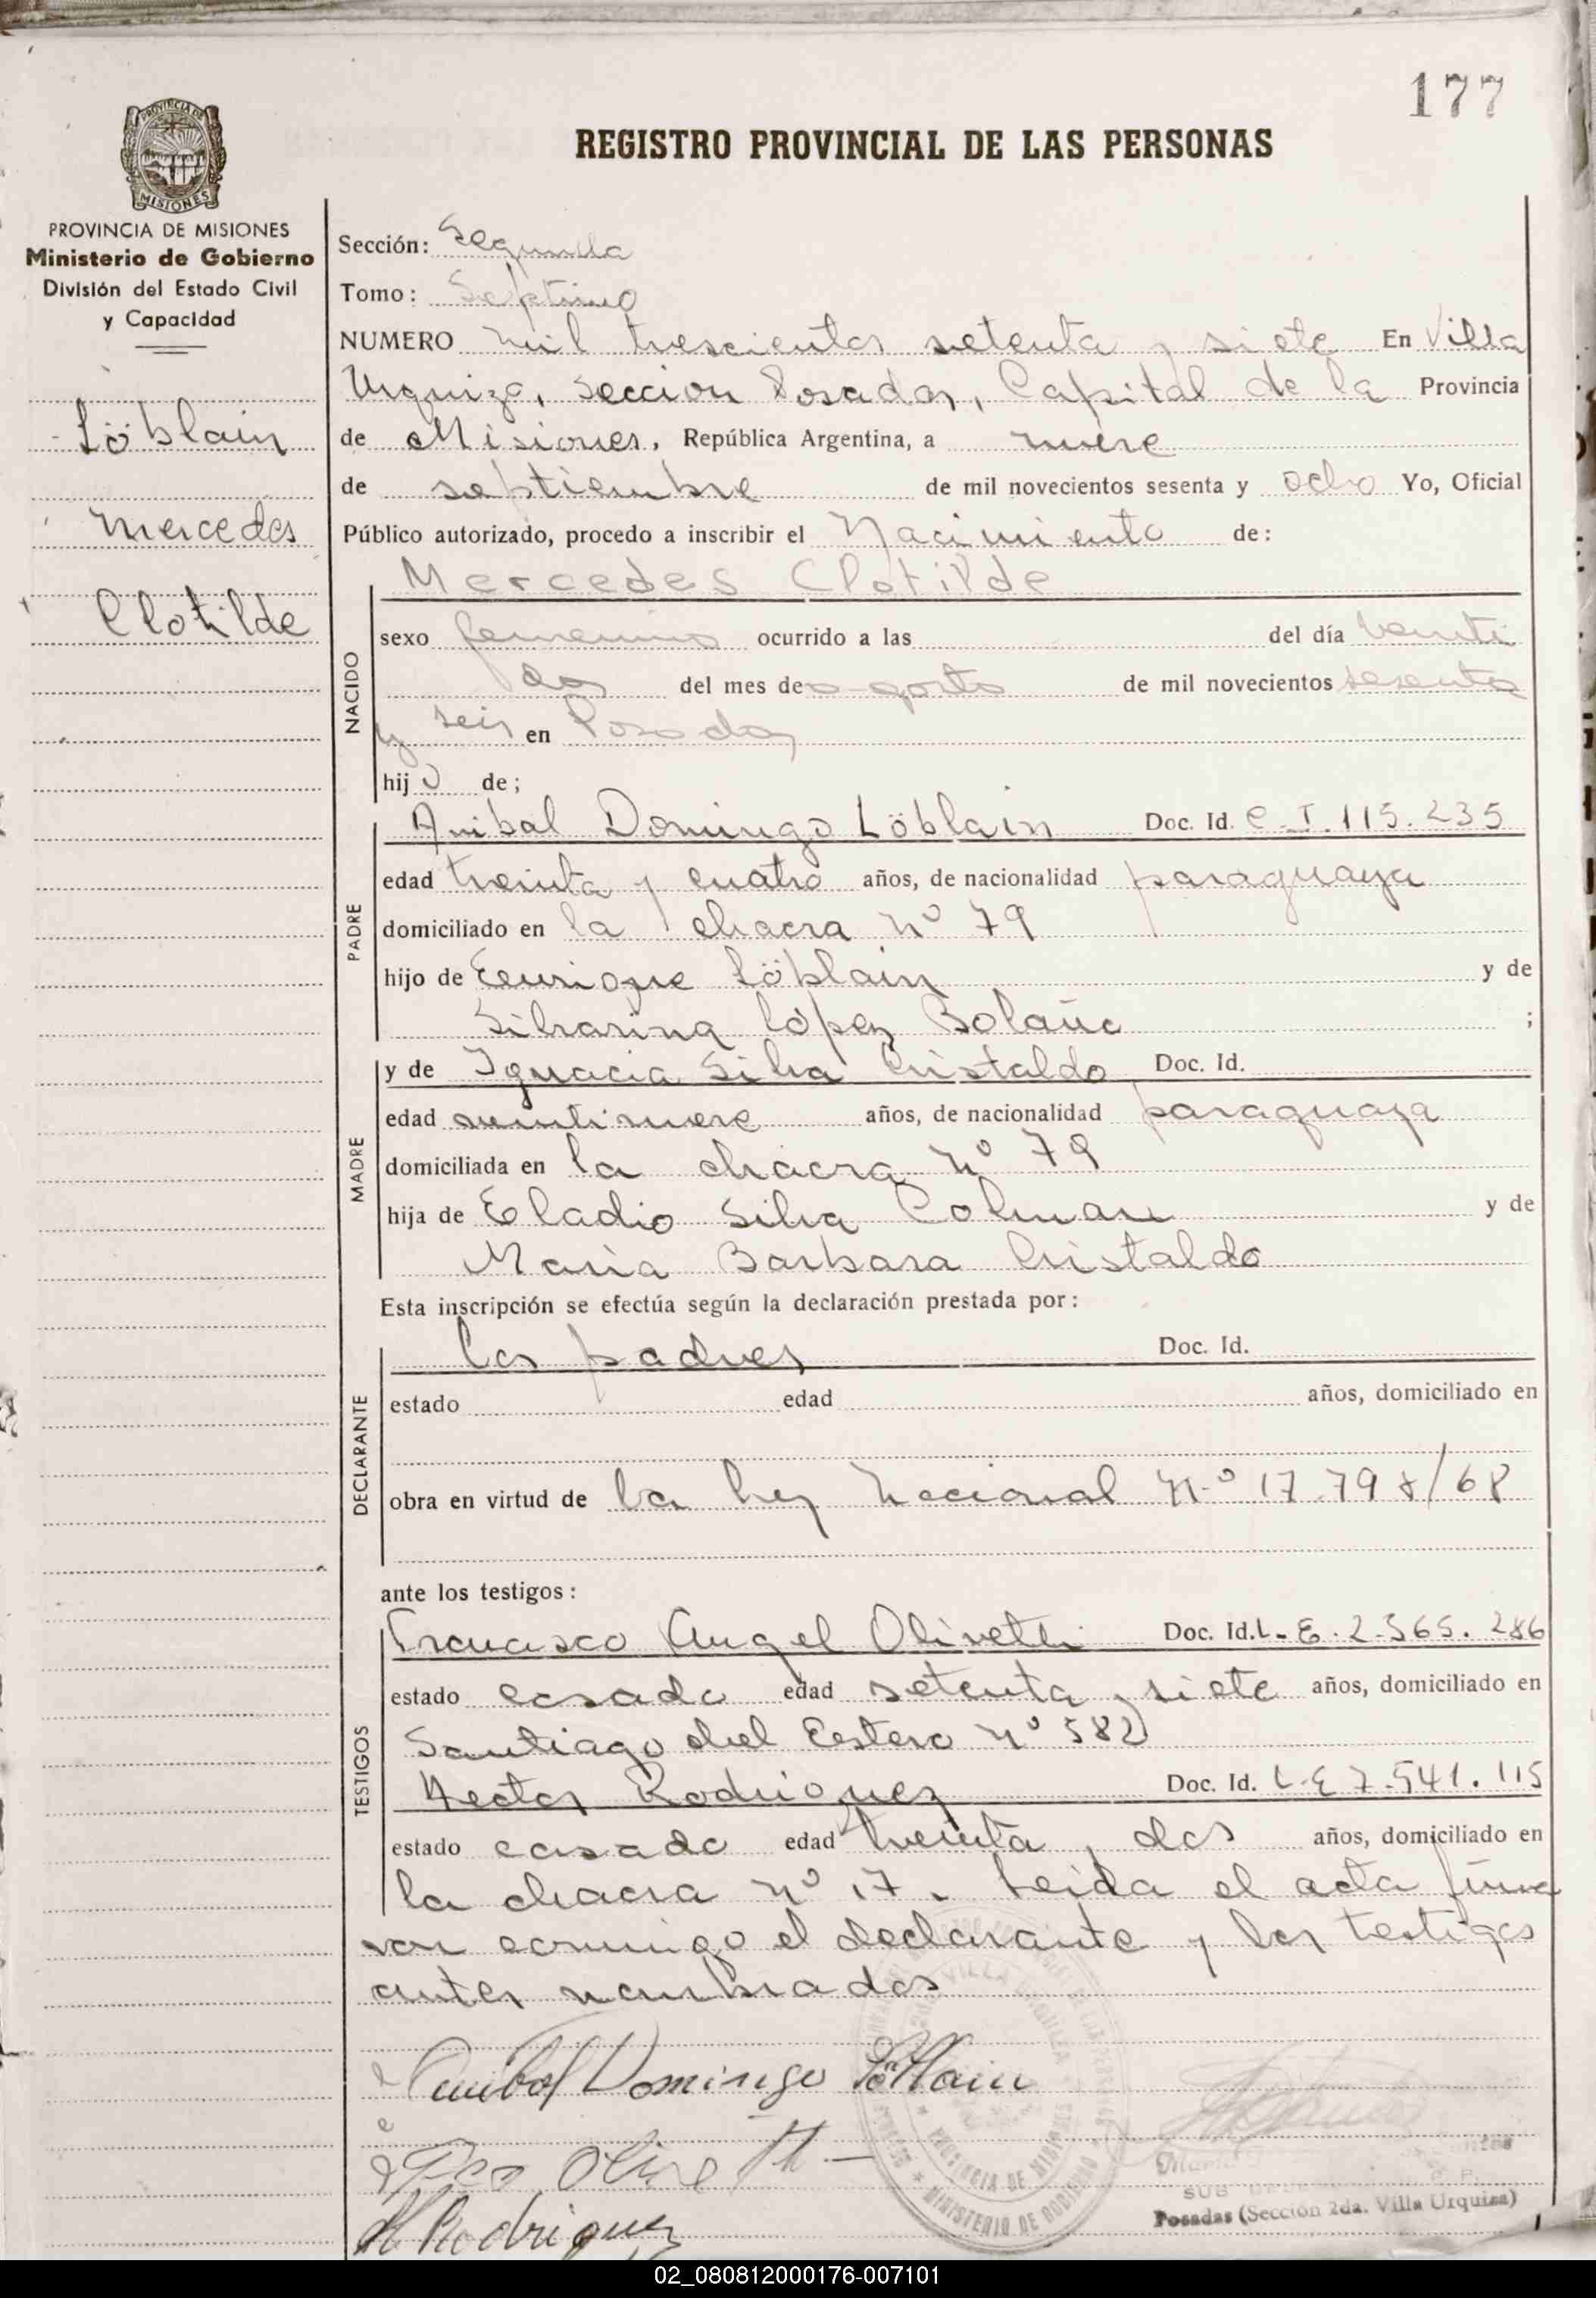 177
REGISTRO PROVINCIAL DE LAS PERSONAS
PROVINCIA DE
MISIONES
PROVINCIA DE MISIONES
Ministerio de Gobierno
División del Estado Civil
y Capacidad
Löblain
Mercedes
Clotilde
Sección: Segunda
Tomo: Septimo
NUMERO mil trescientos setenta y siete En Villa
Urquiza, Seccion Posadas, Capital de la Provincia
de Misiones, República Argentina, a nueve
de septiembre de mil novecientos sesenta y ocho Yo, Oficial
Público autorizado, procedo a inscribir el Nacimiento de:
NACIDO
Mercedes Clotilde
sexo femenino ocurrido a las del día veinti
dos del mes de agosto de mil novecientos sesenta
y seis en Posadas
hij de;
PADRE
Anibal Domingo Löblain Doc. Id. C.I. 115.235
edad treinta y cuatro años, de nacionalidad paraguaya
domiciliado en la chacra Nº 79
hijo de Enrique Löblain y de
López Bolaño ;
MADRE
y de Ignacia Silva Cristaldo Doc. Id.
edad veintinueve años, de nacionalidad paraguaya
domiciliada en la chacra Nº 79
hija de Eladio Silva Colman y de
Maria Barbara Cristaldo
Esta inscripción se efectúa según la declaración prestada por:
DECLARANTE
los padres Doc. Id.
estado edad años, domiciliado en
obra en virtud de la ley Nacional Nº 17.798/68
ante los testigos:
TESTIGOS
Francisco Angel Olivetti Doc. Id. L.E. 2.565.286
estado casado edad setenta y siete años, domiciliado en
Santiago del Estero Nº 582
Hector Rodriguez Doc. Id. L.E 7.541.115
estado casado edad treinta y dos años, domiciliado en
la chacra Nº 17. Leida el acta firma
ron conmigo el declarante y los testigos
antes nombrados
Anibal Domingo Löblain
Olivetti
H Rodriguez
VILLA URQUIZA
PROVINCIA DE MISIONES
MINISTERIO DE GOBIERNO
SUB
Posadas (Sección 2da. Villa Urquiza)
02_080812000176-007101